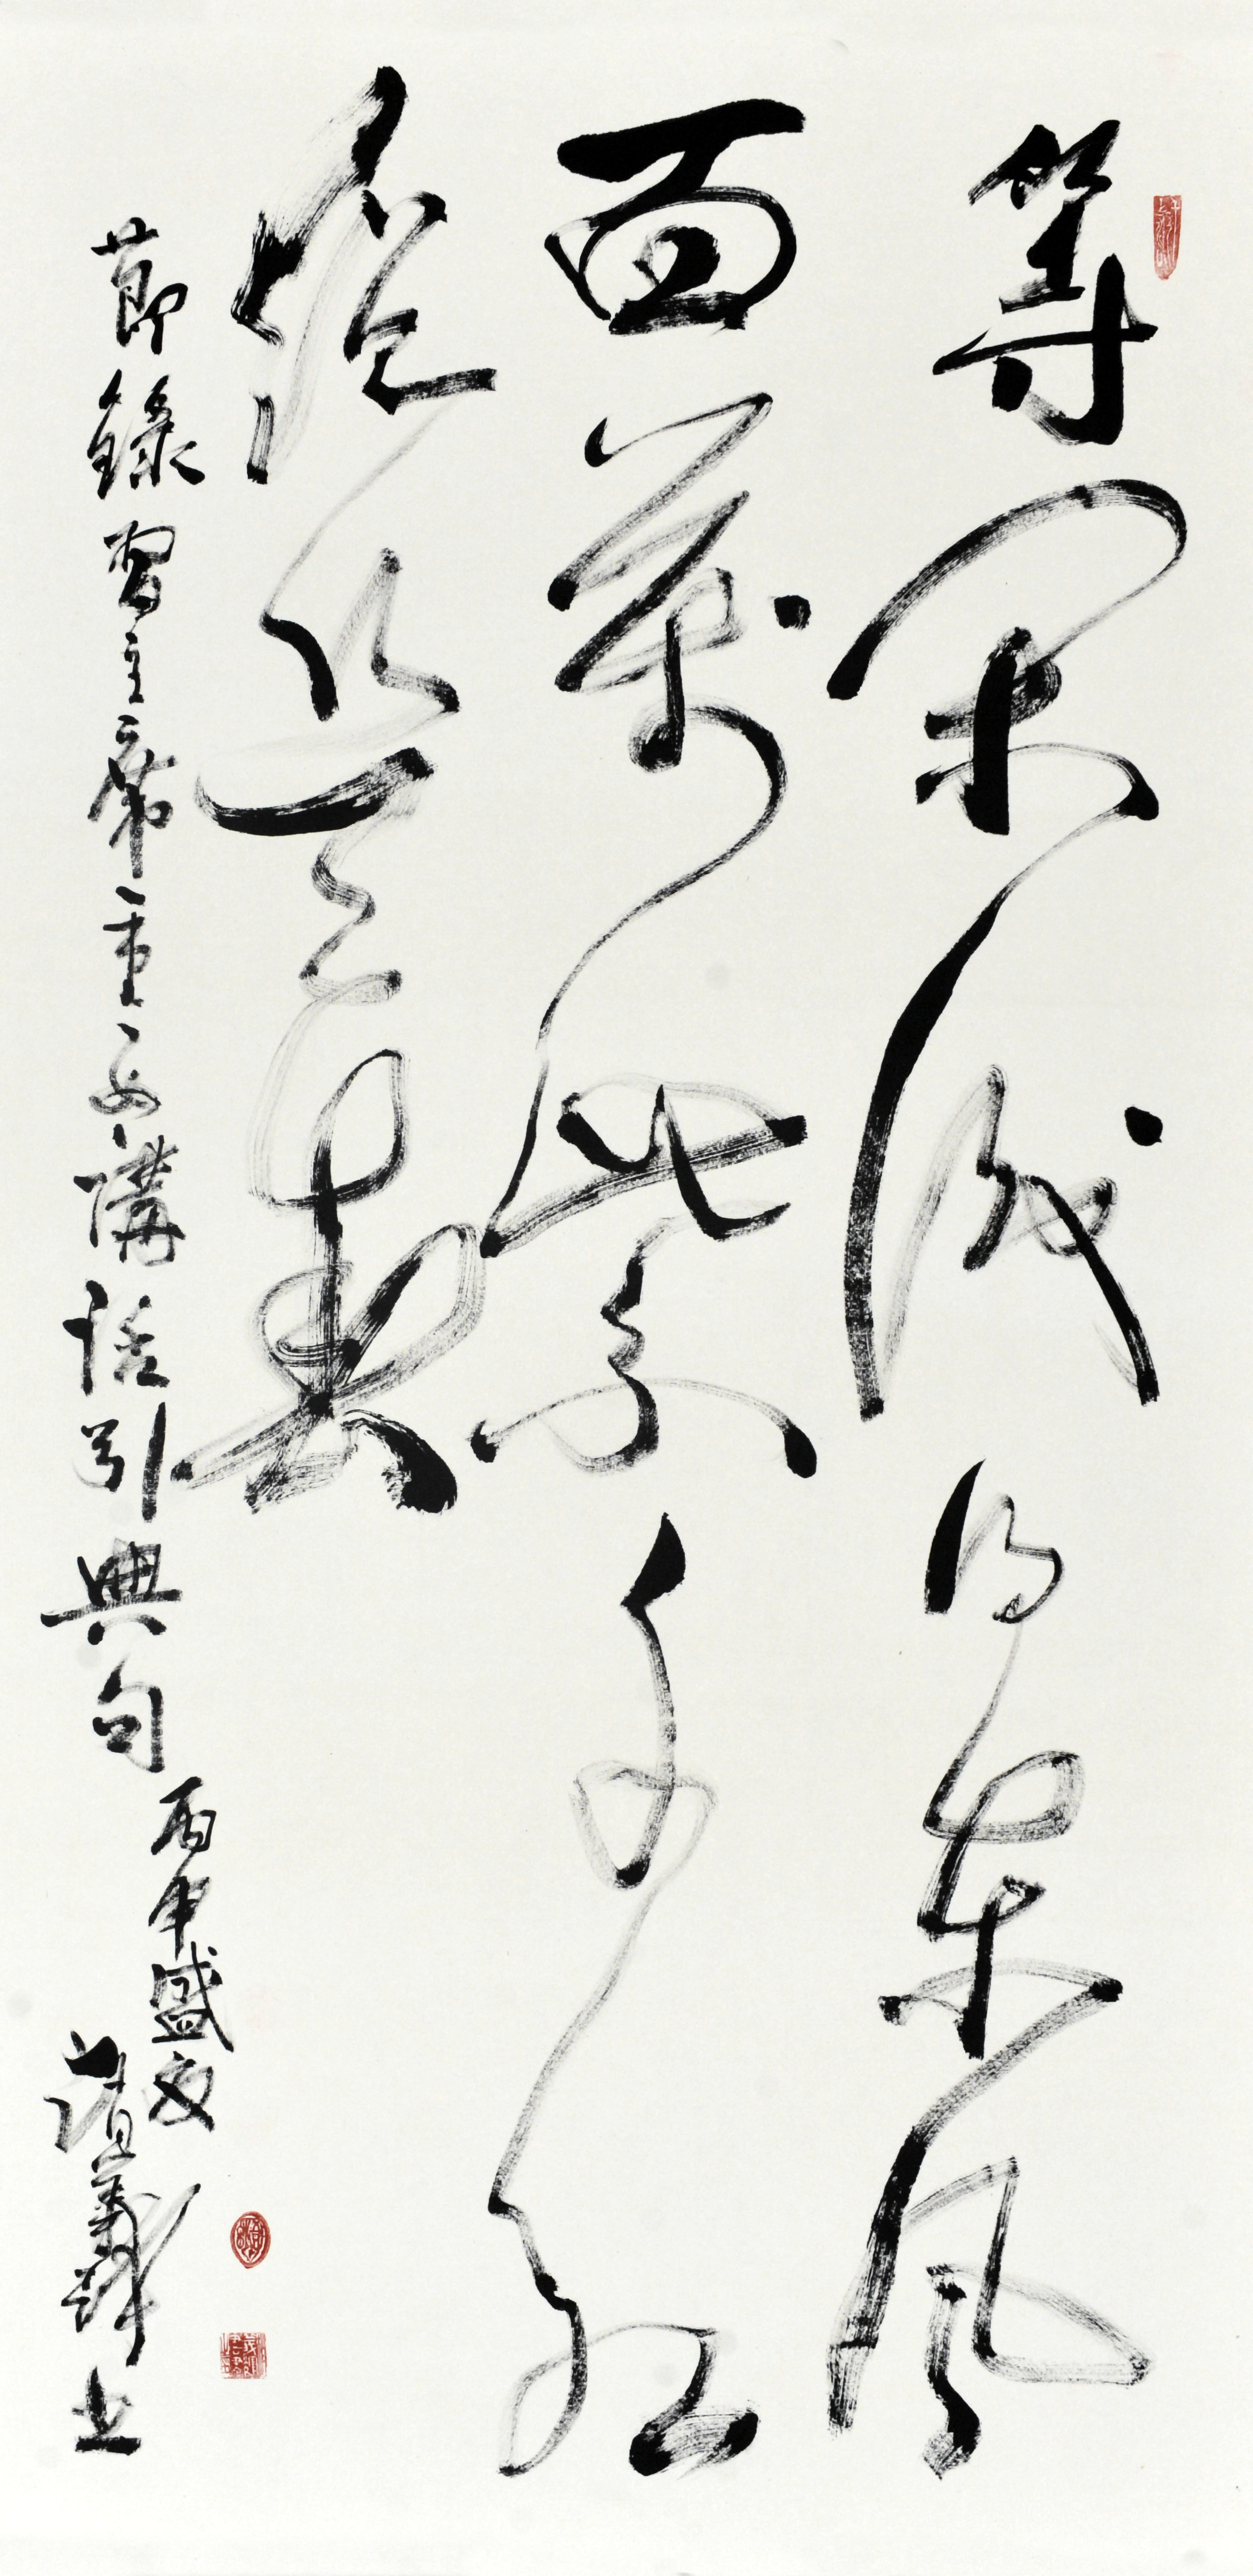 等閑識得東風
面萬紫千紅
總是春
節錄習主席重要講話引典句
丙申盛夏
書